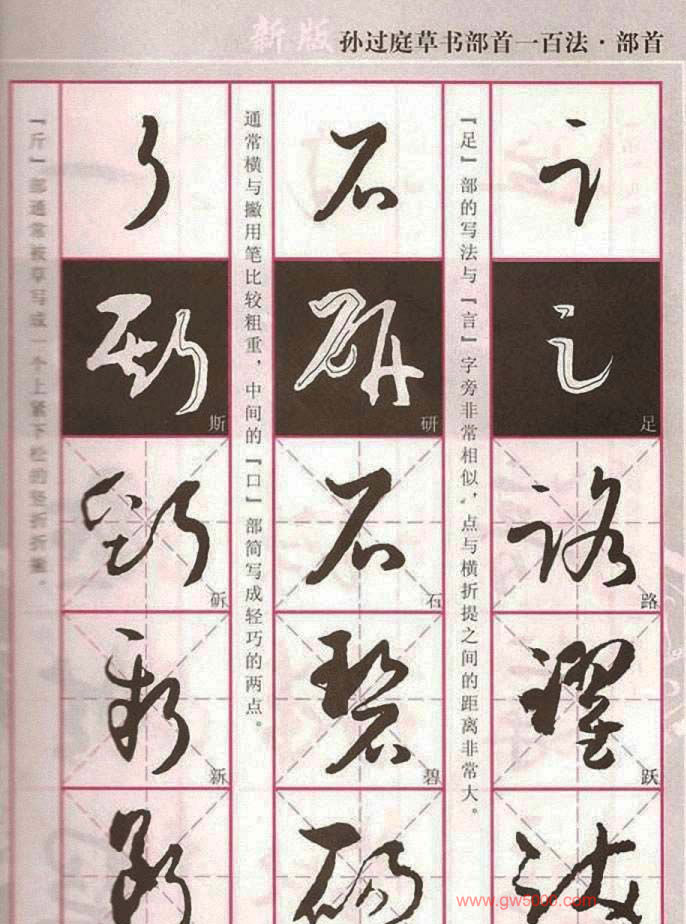 新版 孙过庭草书部首一百法·部首
足
路
跃
『足』部的写法与『言』字旁非常相似，点与横折提之间的距离非常大。
石
研
石
碧
通常横与撇用笔比较粗重，中间的『口』部简写成轻巧的两点。
斯
斫
新
『斤』部通常被草写成一个上紧下松的竖折折撇。